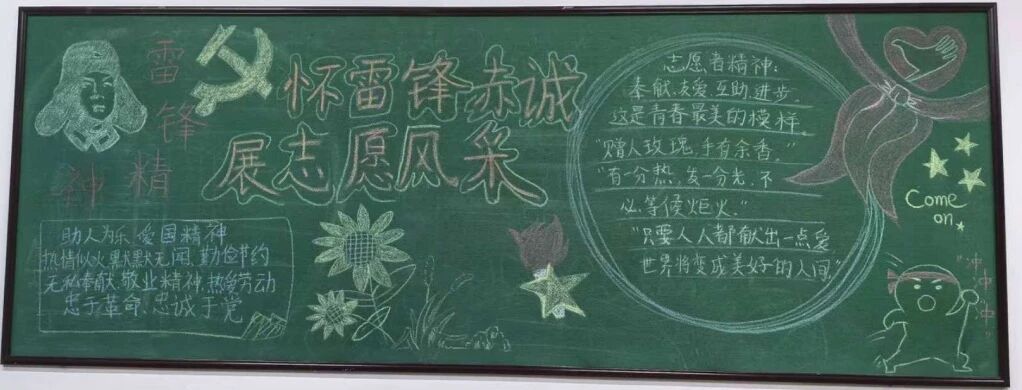 雷锋
精神
怀雷锋赤诚
展志愿风采
助人为乐 爱国精神
热情似火 默默无闻、勤俭节约
无私奉献、敬业精神、热爱劳动
忠于革命、忠诚于党
志愿者精神：
奉献、友爱、互助、进步。
这是青春最美的模样。
“赠人玫瑰，手有余香。”
“有一分热，发一分光，不
必等候炬火。”
“只要人人都献出一点爱
世界将变成美好的人间”
Come
on。
“冲冲冲”